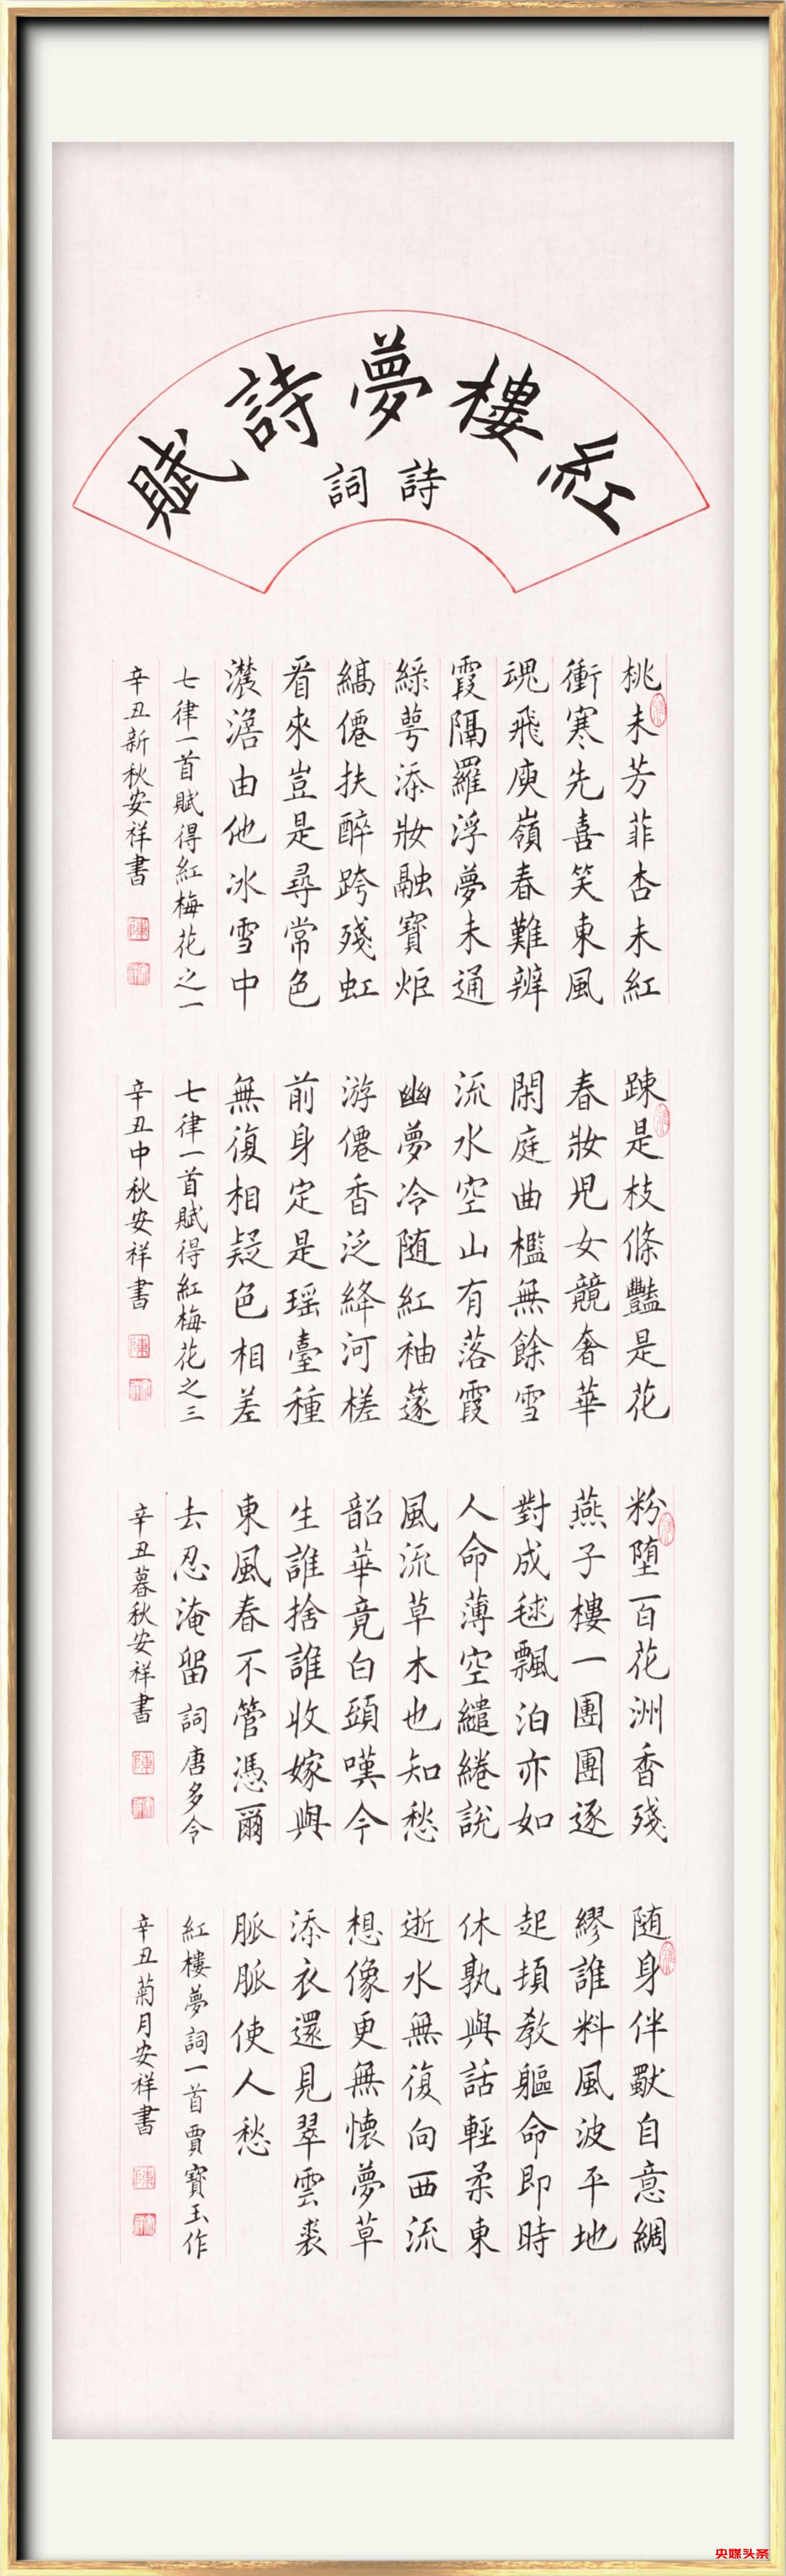 紅樓夢詩賦
詩詞
桃未芳菲杏未紅
衝寒先喜笑東風
魂飛庾嶺春難辨
霞隔羅浮夢未通
綠萼添妝融寶炬
縞僊扶醉跨殘虹
看來豈是尋常色
濃澹由他冰雪中
七律一首賦得紅梅花之一
辛丑新秋安祥書
踈是枝條豔是花
春妝児女競奢華
閑庭曲檻無餘雪
流水空山有落霞
幽夢冷随紅袖篴
游僊香泛絳河槎
前身定是瑶臺種
無復相疑色相差
七律一首賦得紅梅花之三
辛丑中秋安祥書
粉堕百花洲香殘
燕子樓一團團逐
對成毬飄泊亦如
人命薄空繾綣說
風流草木也知愁
韶華竟白頭嘆今
生誰捨誰收嫁與
東風春不管憑爾
去忍淹留 詞唐多令
辛丑暮秋安祥書
随身伴獸自意綢
繆誰料風波平地
起頃教軀命即時
休孰與話輕柔東
逝水無復向西流
想像更無懷夢草
添衣還見翠雲裘
脈脈使人愁
紅樓夢詞一首賈寶玉作
辛丑菊月安祥書
央媒头条